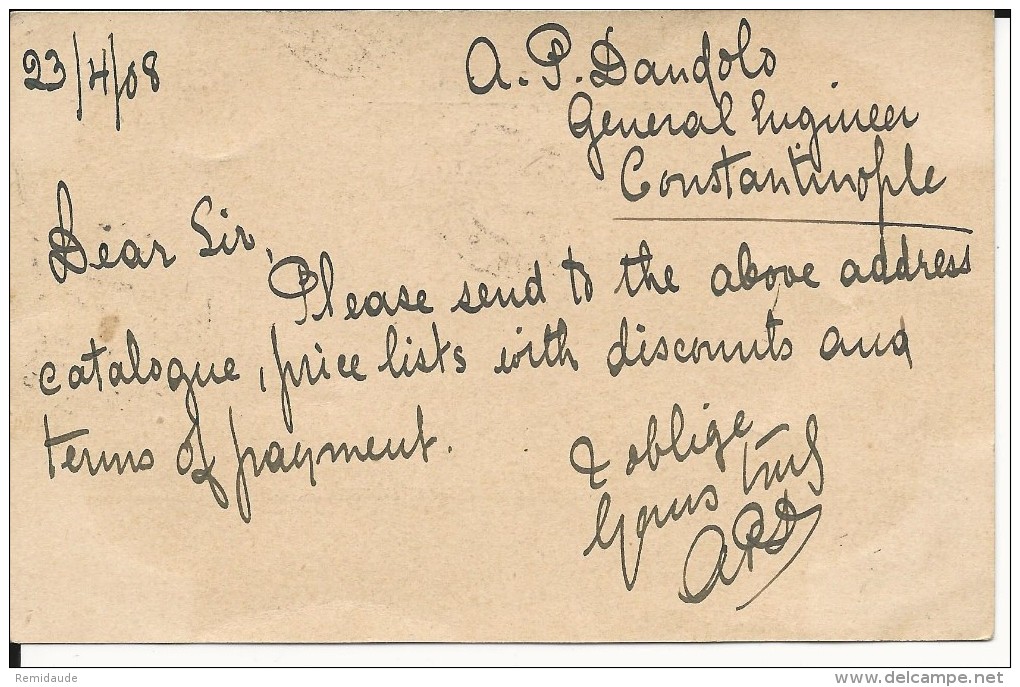 23/4/08
A. P. Dandolo
General Engineer
Constantinople
Dear Sir,
Please send to the above address
catalogue, price lists with discounts and
terms of payment.
& oblige
Yours truly
APD
Remidaude
www.delcampe.net